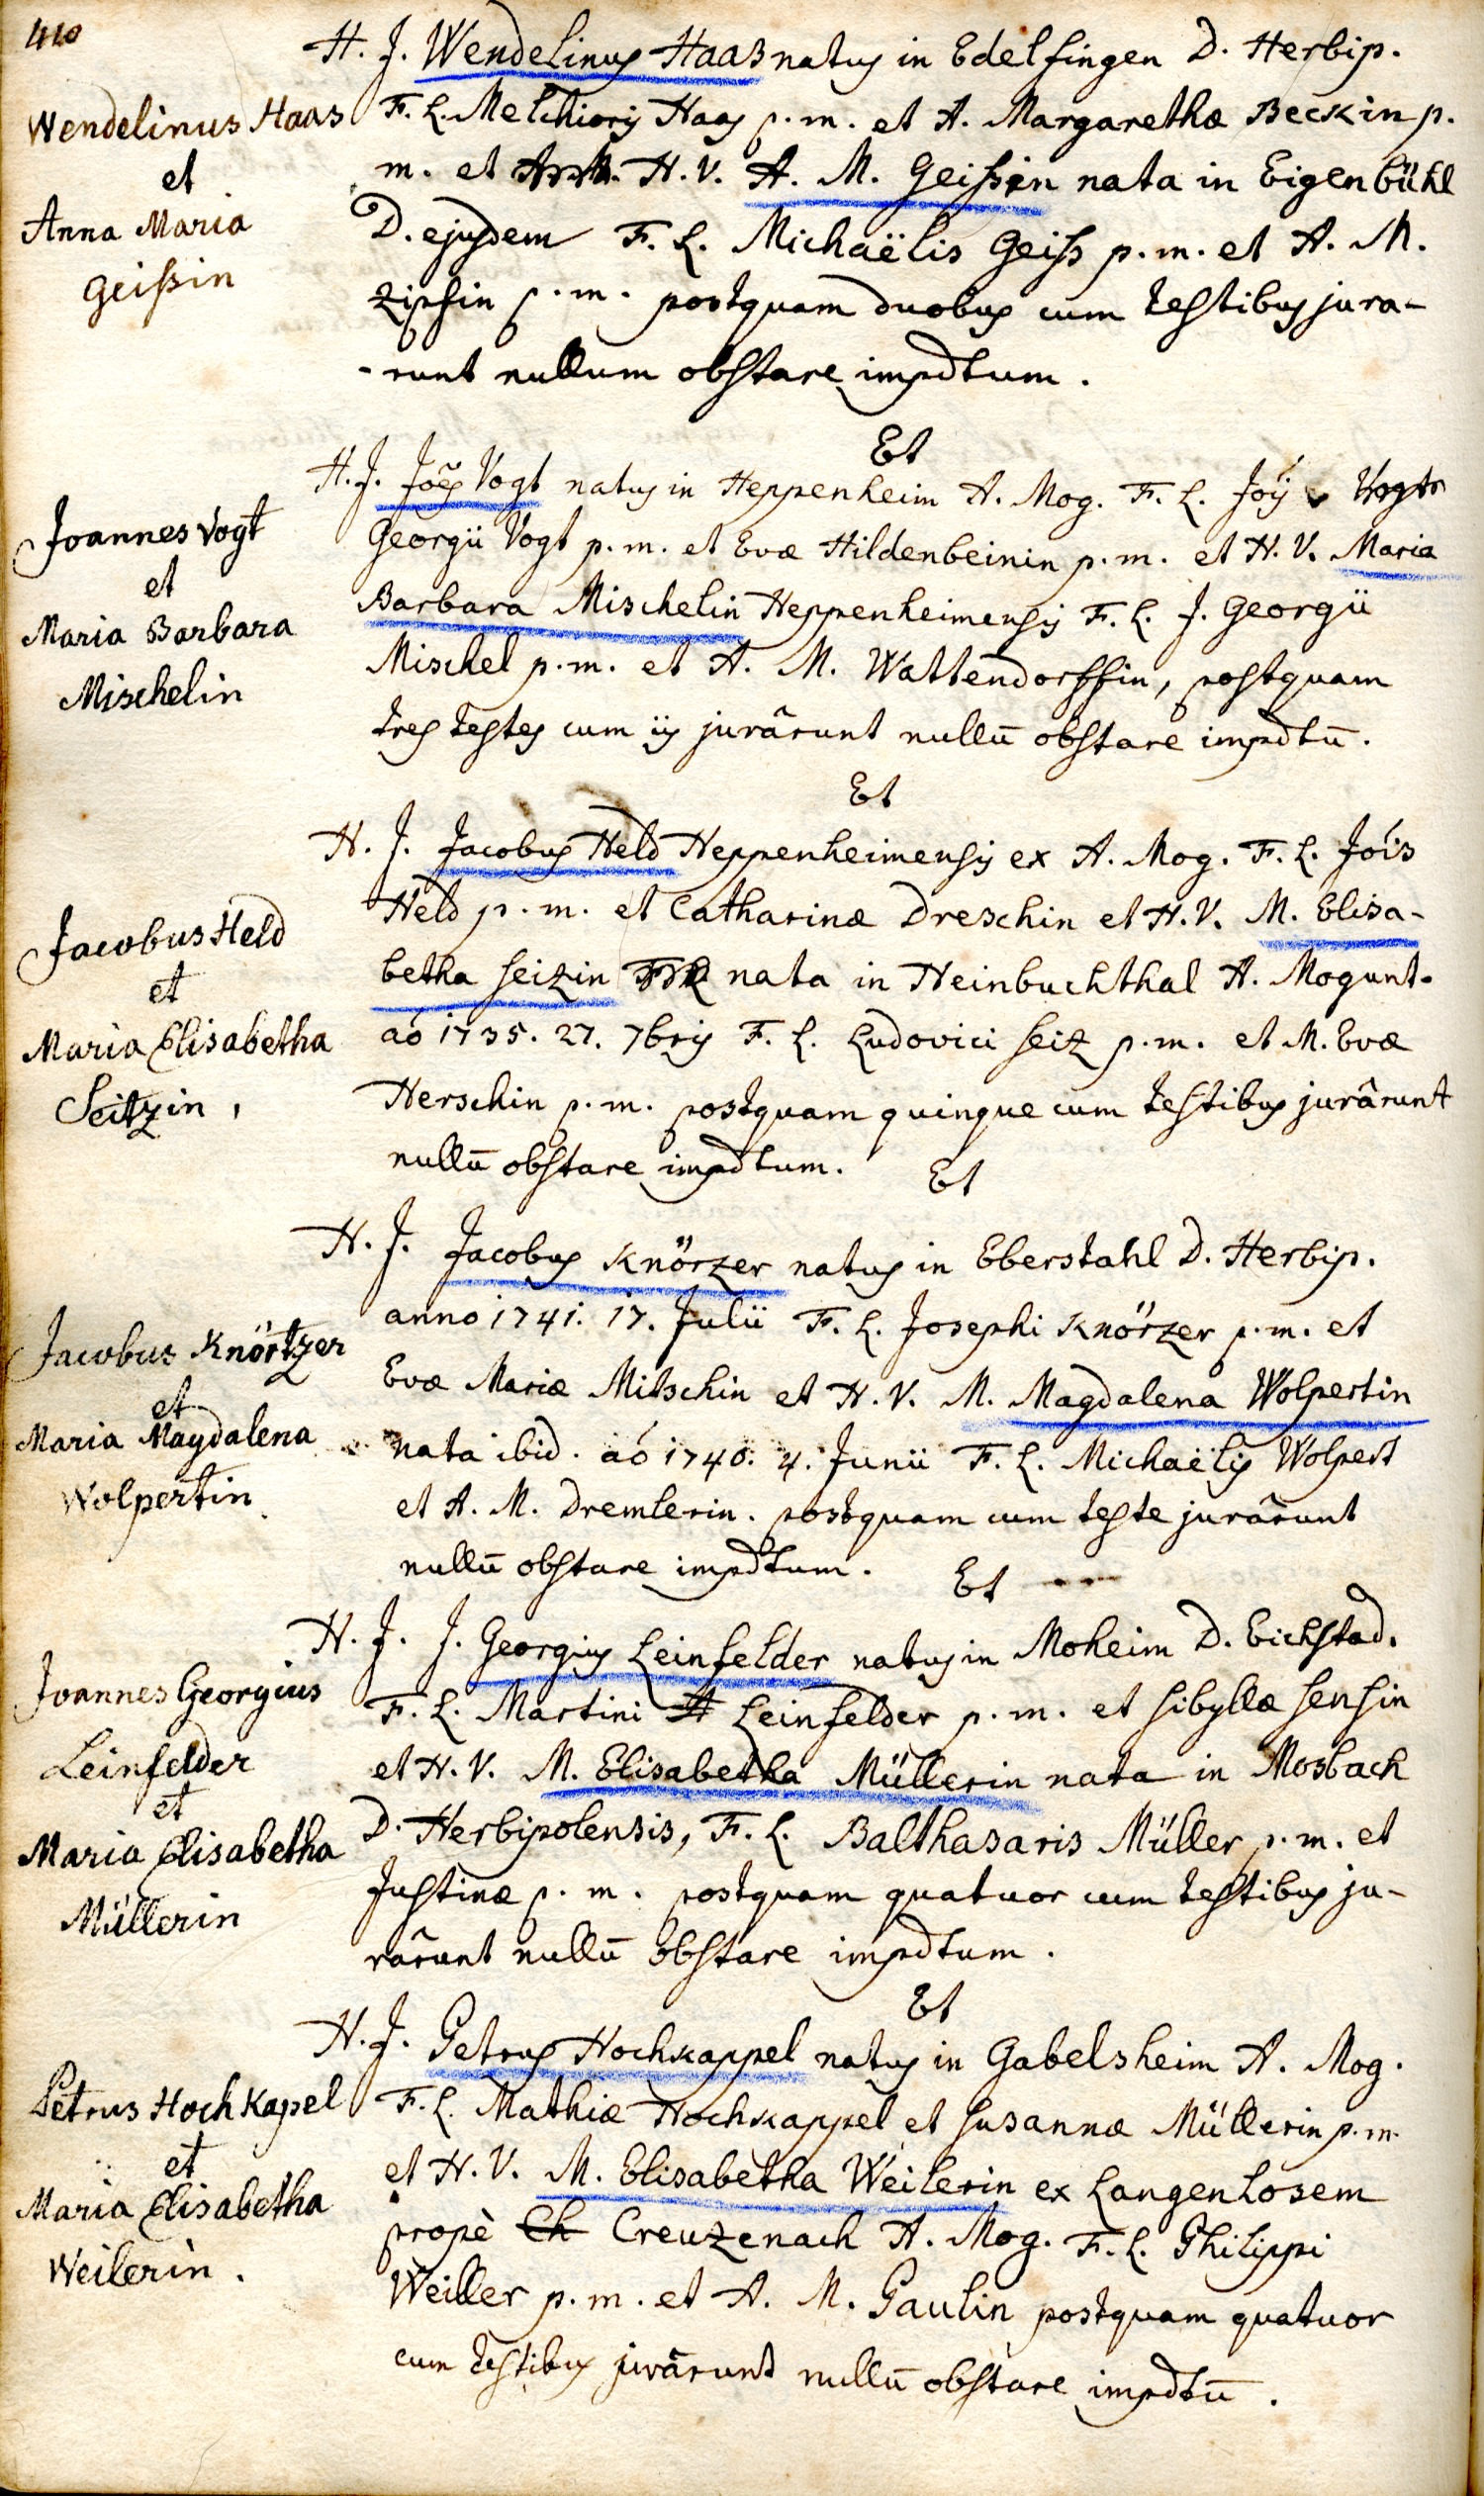 410
H. J. Wendelinus Haas natus in Edelfingen D. Herbip.
Wendelinus Haas
et
Anna Maria
Geißin
F. L. Melchioris Haas p. m. et A. Margarethæ Beckin p.
m. et H. V. A. M. Geißin nata in Eigenbühl
D. ejusdem F. L. Michaëlis Geiß p. m. et A. M.
Zipfin p. m. postquam duobus cum testibus jura-
-runt nullum obstare impdtum.
Et
Joannes Vogt
et
Maria Barbara
Mischelin
H. J. Joẽs Vogt natus in Heppenheim A. Mog. F. L. Joís Vogts
Georgii Vogt p. m. et Evæ Hildenbeinin p. m. et H. V. Maria
Barbara Mischelin Heppenheimensis F. L. J. Georgii
Mischel p. m. et A. M. Wattendorffin, postquam
tres testes cum iis jurârunt nullū obstare impdtū.
Et
Jacobus Held
et
Maria Elisabetha
Seitzin,
H. J. Jacobus Held Heppenheimensis ex A. Mog. F. L. Joís
Held p. m. et Catharinæ Dreschin et H. V. M. Elisa-
betha Seizin nata in Heinbuchthal A. Mogunt.
aó 1735. 27. 7bris F. L. Ludovici Seiz p. m. et M. Evæ
Herschin p. m. postquam quinque cum testibus jurârunt
nullū obstare impdtum.
Et
Jacobus Knörtzer
et
Maria Magdalena
Wolpertin
H. J. Jacobus Knörzer natus in Eberstahl D. Herbip.
anno 1741. 17. Julii F. L. Josephi Knörzer p. m. et
Evæ Mariæ Mitschin et H. V. M. Magdalena Wolpertin
nata ibid. aó 1740. 4. Junii F. L. Michaëlis Wolpert
et A. M. Dremlerin. postquam cum teste jurârunt
nullū obstare impdtum.
Et
Joannes Georgius
Leinfelder
et
Maria Elisabetha
Müllerin
H. J. J. Georgius Leinfelder natus in Moheim D. Eichstad.
F. L. Martini A Leinfelder p. m. et Sibyllæ Sensin
et H. V. M. Elisabetha Müllerin nata in Mosbach
D. Herbipolensis, F. L. Balthasaris Müller p. m. et
Justinæ p. m. postquam quatuor cum testibus ju-
rârunt nullū obstare impdtum.
Et
Petrus Hochkapel
et
Maria Elisabetha
Weilerin.
H. J. Petrus Hochkappel natus in Gabelsheim A. Mog.
F. L. Mathiæ Hochkappel et Susannæ Müllerin p. m.
et H. V. M. Elisabetha Weilerin ex Langenlosem
propè Ch Creuzenach A. Mog. F. L. Philippi
Weiller p. m. et A. M. Paulin postquam quatuor
cum testibus jurârunt nullū obstare impdtū.